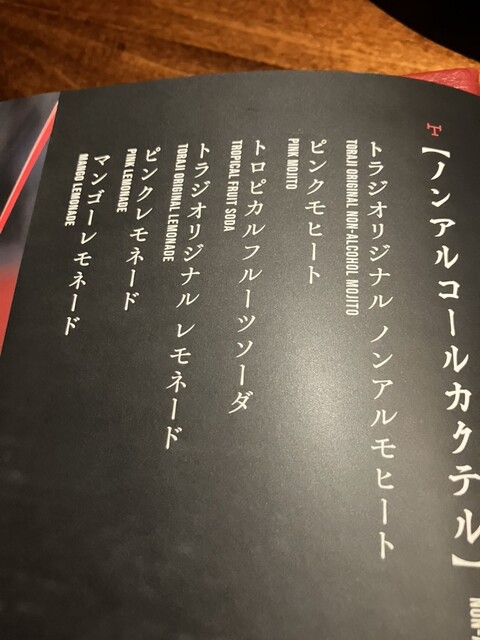 【ノンアルコールカクテル】
トラジオリジナル ノンアルモヒート
TORAJI ORIGINAL NON-ALCOHOL MOJITO
ピンクモヒート
PINK MOJITO
トロピカルフルーツソーダ
TROPICAL FRUIT SODA
トラジオリジナル レモネード
TORAJI ORIGINAL LEMONADE
ピンクレモネード
PINK LEMONADE
マンゴーレモネード
MANGO LEMONADE